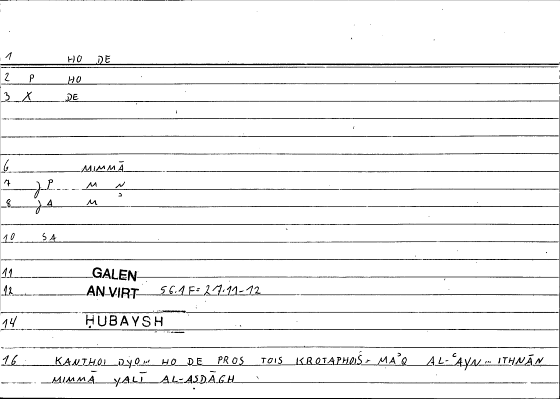 1 HO DE
2 P HO
3 X DE
6 MIMMĀ
7 P M N
8 A M ʾ
10 SA
11 GALEN
12 AN VIRT 56.1 F = 27.11-12
14 ḤUBAYSH
16 KANTHOI DYO... HO DE PROS TOIS KROTAPHOIS = MAʾQ AL-ʿAYN... ITHNĀN
MIMMĀ YALĪ AL-AṢDĀGH